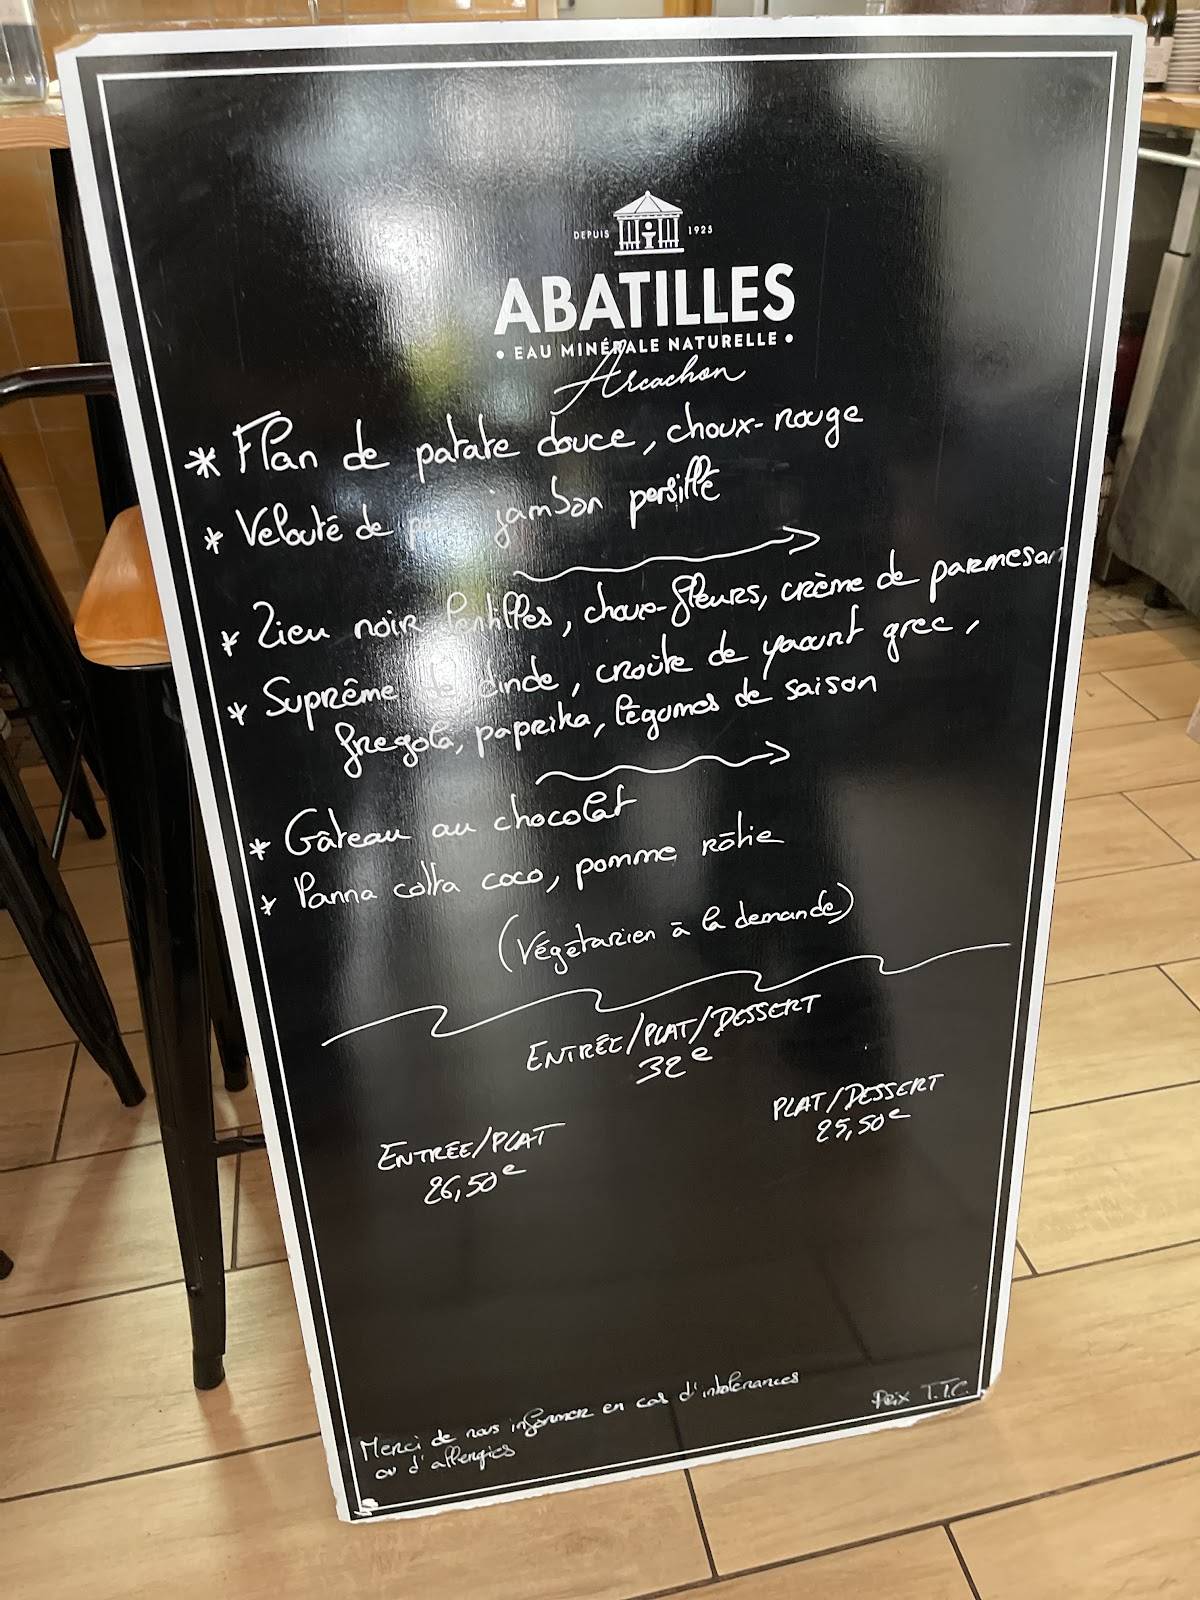 DEPUIS 1925
ABATILLES
• EAU MINÉRALE NATURELLE •
Arcachon
* Flan de patate douce, choux-rouge
* Velouté de jambon persillé
* Lieu noir lentilles, choux-fleurs, crème de parmesan
* Suprême de dinde, croûte de yaourt grec,
fregola, paprika, légumes de saison
* Gâteau au chocolat
* Panna cotta coco, pomme rôtie
(Végétarien à la demande)
ENTRÉE/PLAT/DESSERT
32€
PLAT/DESSERT
25,50€
ENTRÉE/PLAT
26,50€
Merci de nous informer en cas d'intolérances
ou d'allergies
Prix T.T.C.